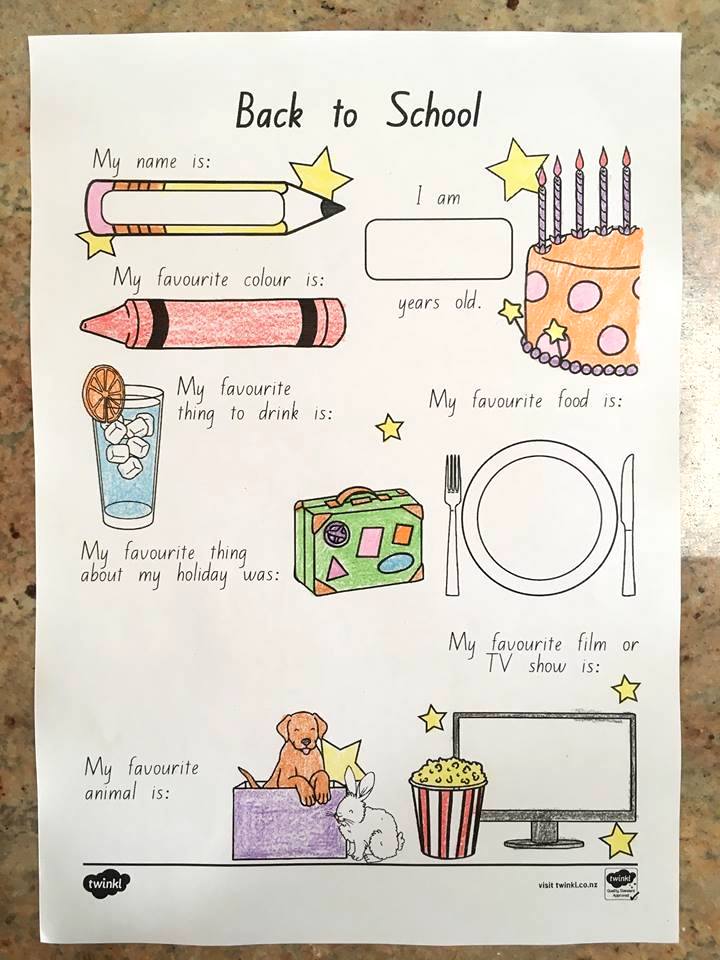 Back to School
My name is:
I am
years old.
My favourite colour is:
My favourite
thing to drink is:
My favourite food is:
My favourite thing
about my holiday was:
My favourite film or
TV show is:
My favourite
animal is:
twinkl
visit twinkl.co.nz
twinkl
Quality Standard
Approved